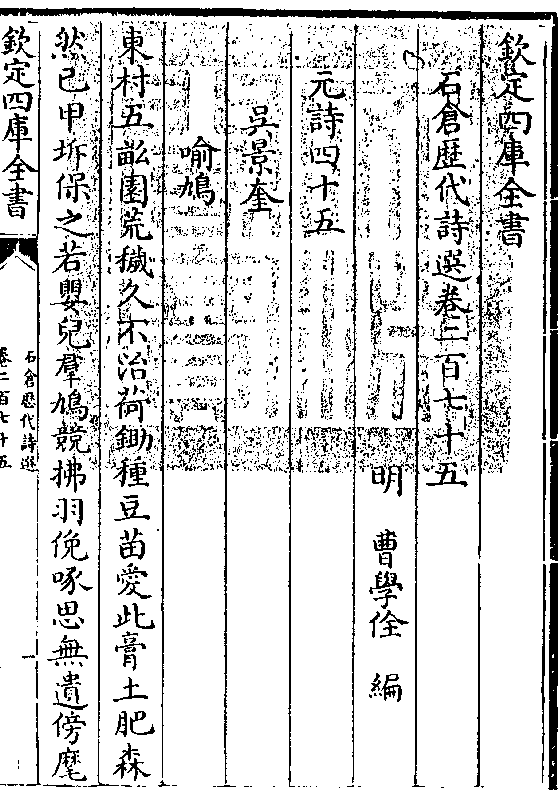 欽定四庫全書
石倉歷代詩選卷二百七十五
明 曹學佺 編
元詩四十五
吳景奎
喻鳩
東村五畝園荒穢久不治荷鋤種豆苗愛此膏土肥森
然已甲坼保之若嬰兒羣鳩競拂羽俛啄思無遺傍麾
欽定四庫全書
石倉歷代詩選
卷二百七十五
一